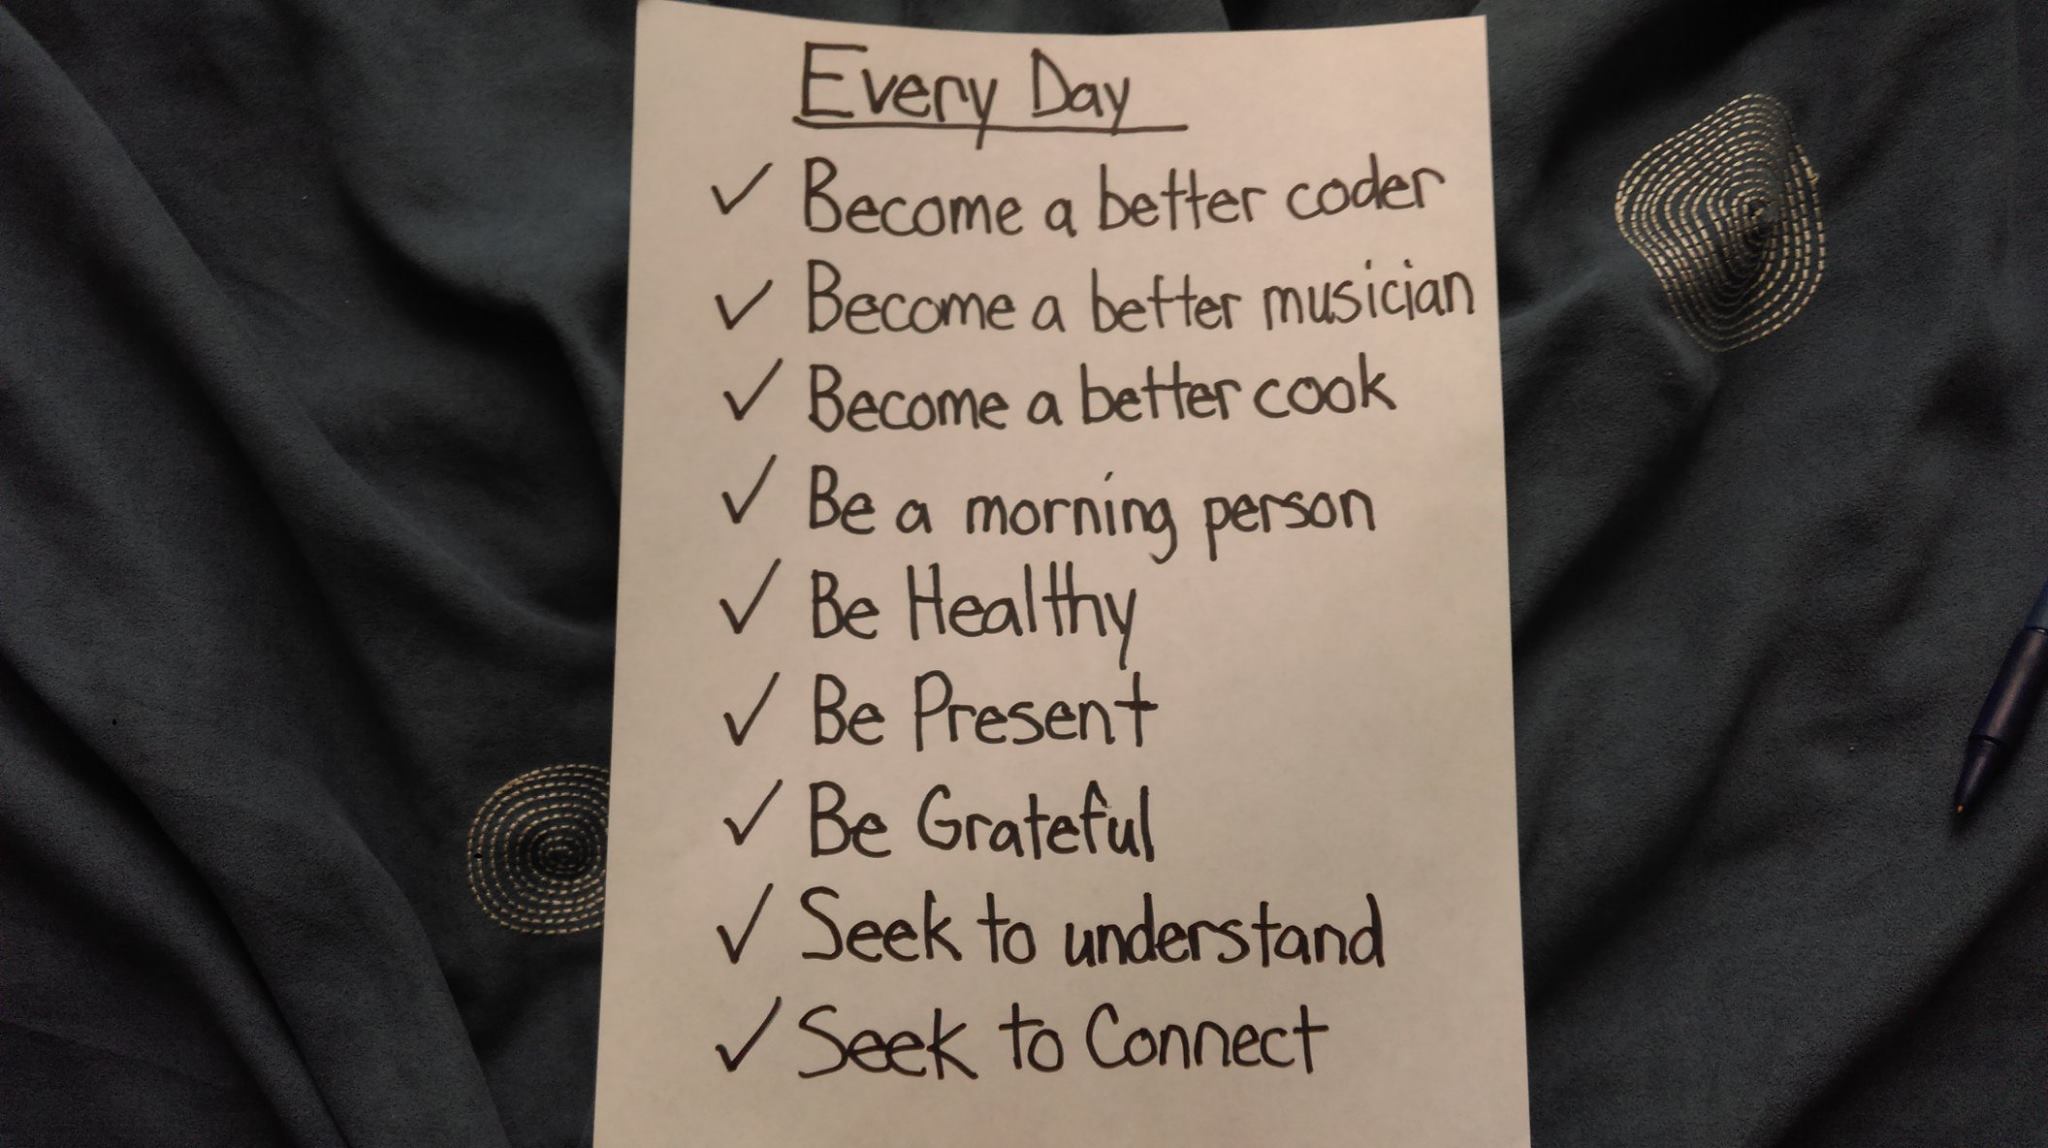 Every Day
✓ Become a better coder
✓ Become a better musician
✓ Become a better cook
✓ Be a morning person
✓ Be Healthy
✓ Be Present
✓ Be Grateful
✓ Seek to understand
✓ Seek to Connect